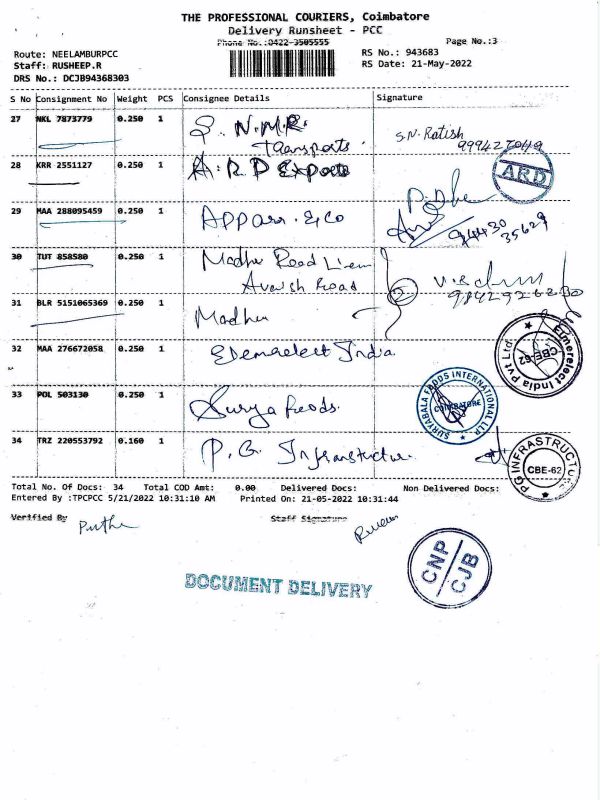 THE PROFESSIONAL COURIERS, Coimbatore
Delivery Runsheet - PCC
Phone No.:0422-3505555
Page No.:3
Route: NEELAMBURPCC
RS No.: 943683
Staff: RUSHEEP.R
RS Date: 21-May-2022
DRS No.: DCJB94368303
S No Consignment No Weight PCS Consignee Details Signature
27 NKL 7873779 0.250 1 S. N.M.R. Transports S.N. Ratish
28 KRR 2551127 0.250 1 A. R D Exports ARD
29 MAA 288095459 0.250 1 Appari & Co 94430 35629
30 TUT 858580 0.250 1 Madhu Road Lien
Avarsh Road 2
31 BLR 5151065369 0.250 1 Madhu
32 MAA 276672058 0.250 1 India Emerelect India Pvt Ltd CBE-62
33 POL 503130 0.250 1 Surya foods. SURYABALA FOODS INTERNATIONAL LLP COIMBATORE
34 TRZ 220553792 0.160 1 P.G. Infrastructure. PG INFRASTRUCTURE CBE-62
Total No. Of Docs: 34 Total COD Amt: 0.00 Delivered Docs: Non Delivered Docs:
Entered By :TPCPCC 5/21/2022 10:31:10 AM Printed On: 21-05-2022 10:31:44
Verified By Staff Signature
CNP
CJB
DOCUMENT DELIVERY